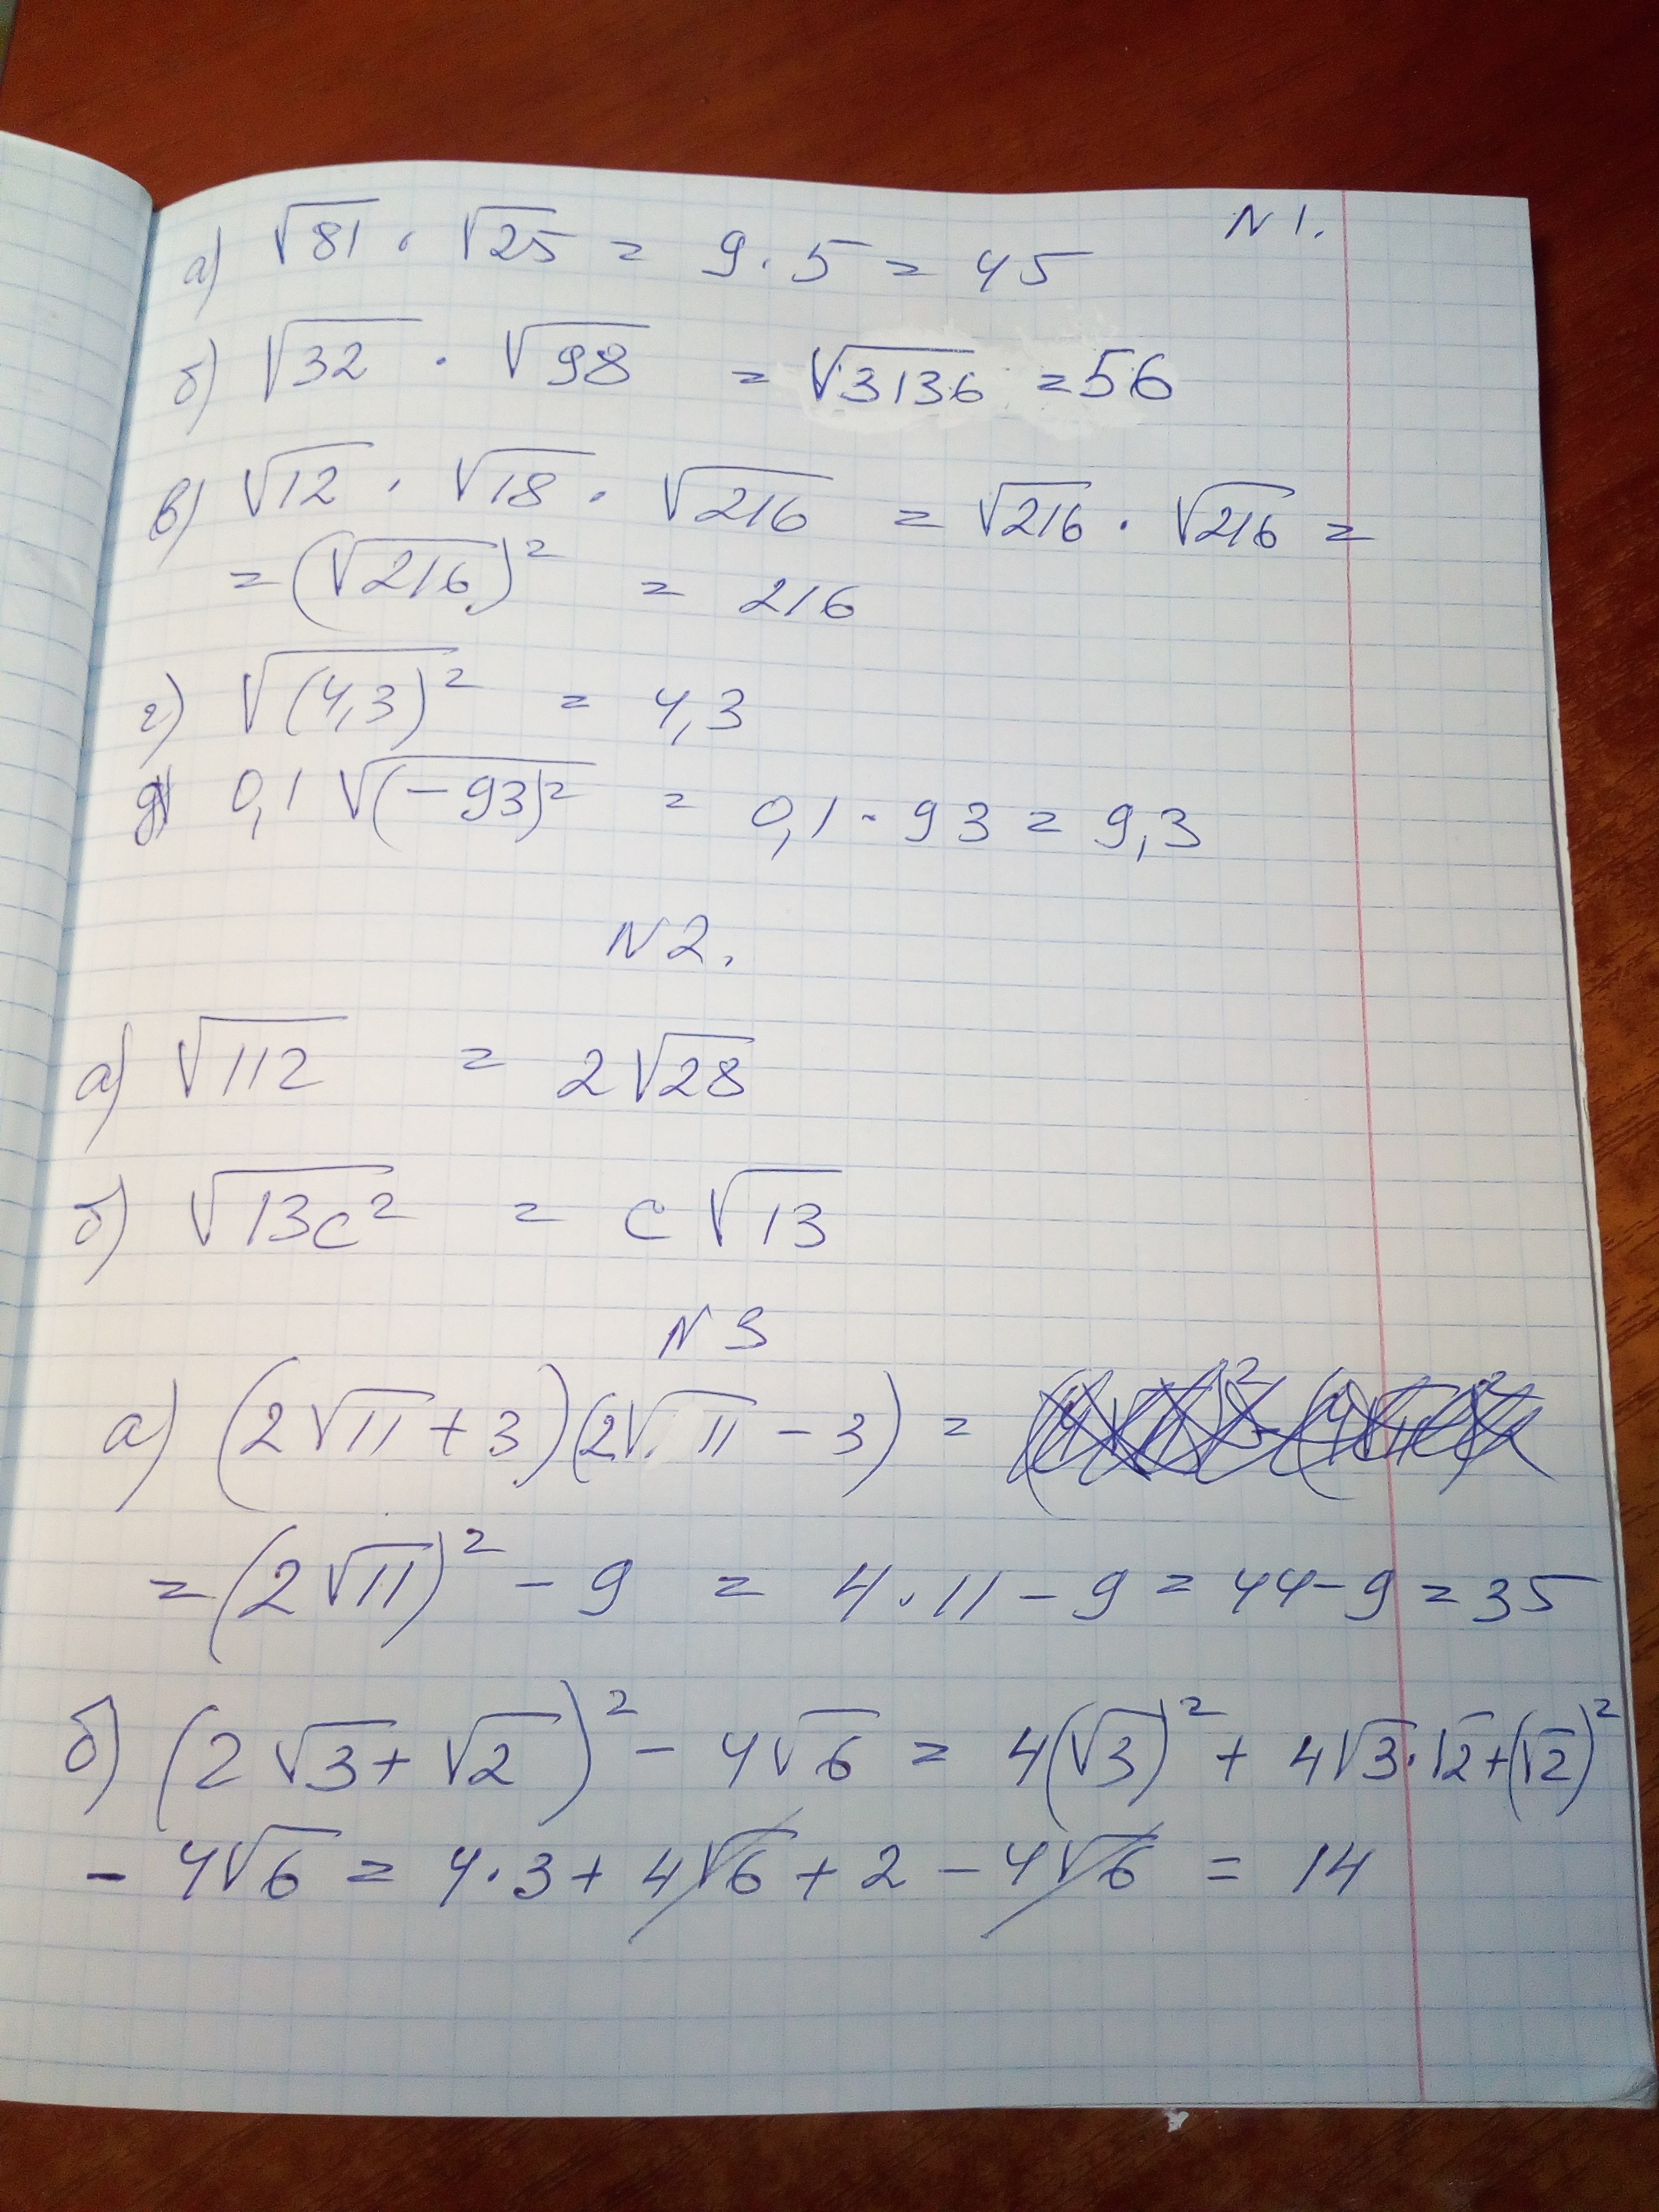 N 1.
а) √81 · √25 = 9 · 5 = 45
б) √32 · √98 = √3136 = 56
в) √12 · √18 · √216 = √216 · √216 =
= (√216)² = 216
г) √(4,3)² = 4,3
д) 0,1 √(-93)² = 0,1 · 93 = 9,3
N 2.
а) √112 = 2√28
б) √13c² = c√13
N 3
а) (2√11 + 3)(2√11 - 3) =
= (2√11)² - 9 = 4 · 11 - 9 = 44 - 9 = 35
б) (2√3 + √2)² - 4√6 = 4(√3)² + 4√3 · √2 + (√2)²
- 4√6 = 4 · 3 + 4√6 + 2 - 4√6 = 14